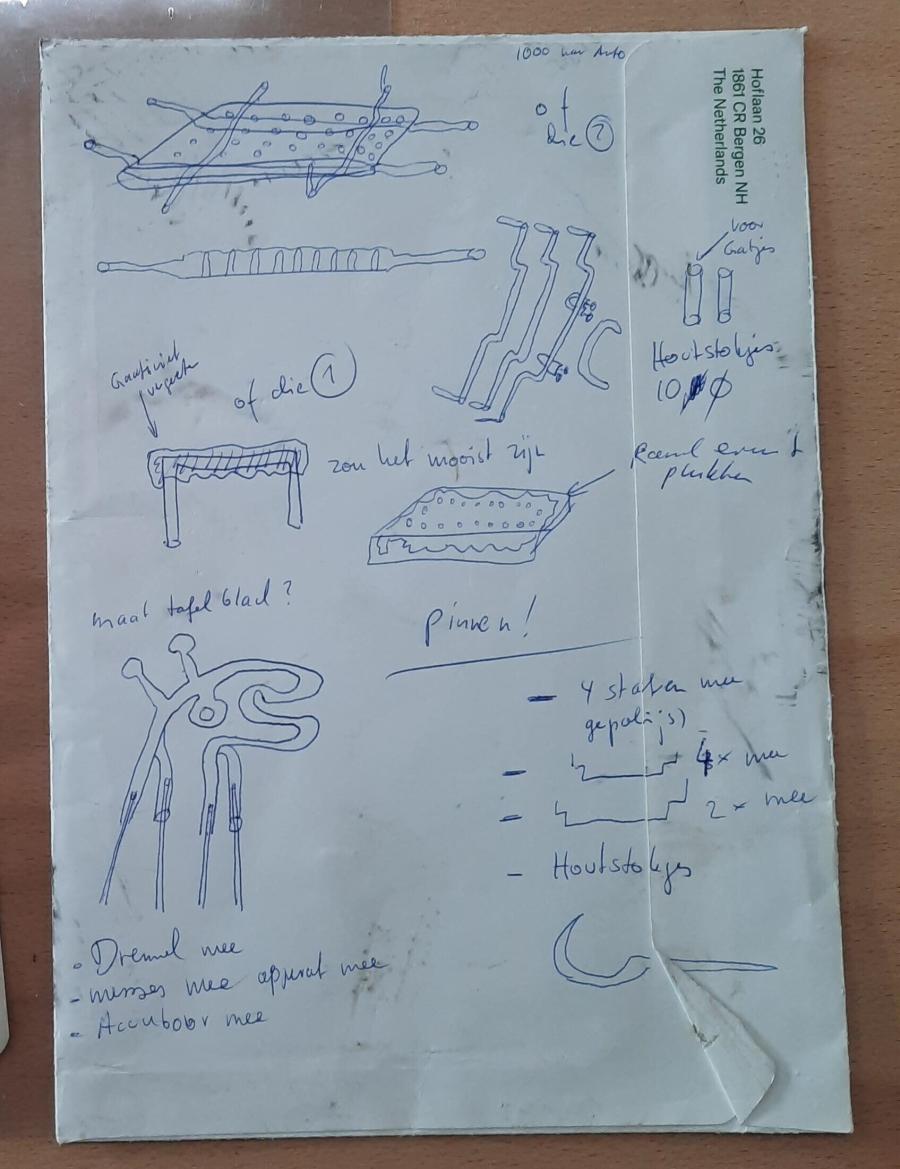 1000 Auto
Hoflaan 26
1861 CR Bergen NH
The Netherlands
of
die 2
voor
Gatjes
Houtstokjes
10 ϕ
of die 1
zou het mooist zijn
maat tafelblad?
pinnen!
- 4 staven mee
gepolijst
- 4x mee
- 2x mee
- Houtstokjes
- Dremel mee
- messes mee apparat mee
- Accuboor mee